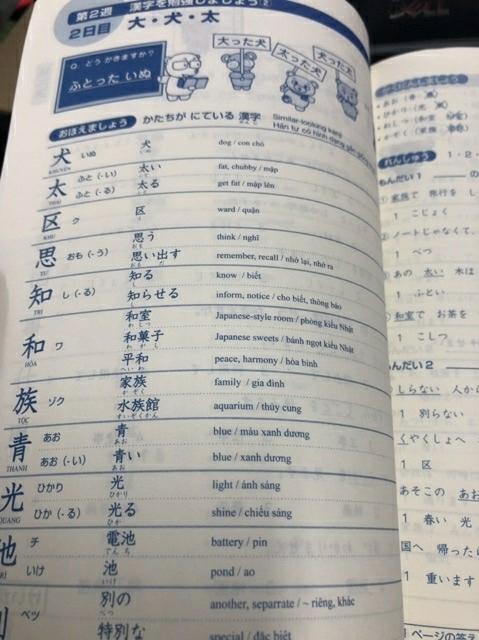 第2週 漢字を勉強しましょう②
2日目 大・犬・太
Q. どう かきますか?
ふとった いぬ
大った犬
犬った太
太った犬
おぼえましょう かたちが にている 漢字
Similar-looking kanji
Hán tự có hình dạng gần giống
犬 いぬ 犬 dog / con chó
KHUYỂN
太 ふと(・い) 太い fat, chubby / mập
THÁI ふと(・る) 太る get fat / mập lên
区 ク 区 ward / quận
KHU
思 おも(・う) 思う think / nghĩ
TƯ 思い出す remember, recall / nhớ lại, nhớ ra
知 し(・る) 知る know / biết
TRI 知らせる inform, notice / cho biết, thông báo
和 ワ 和室 Japanese-style room / phòng kiểu Nhật
HÒA 和菓子 Japanese sweets / bánh ngọt kiểu Nhật
平和 peace, harmony / hòa bình
族 ゾク 家族 family / gia đình
TỘC 水族館 aquarium / thủy cung
青 あお 青 blue / màu xanh dương
THANH あお(・い) 青い blue / xanh dương
光 ひかり 光 light / ánh sáng
QUANG ひか(・る) 光る shine / chiếu sáng
池 チ 電池 battery / pin
いけ 池 pond / ao
ベツ 別の another, separrate / ~ riêng, khác
特別な special / đặc biệt
れんしゅう 1・2
もんだい1
① 家族で 旅行を し
1 こじょく
ノートじゃなくて、
1 べつ
あの 太い 木は
1 ふとい
和室で お茶を
1 こしつ
もんだい2
しらない 人から
1 別らない
くやくしょへ
1 区
あそこの あお
1 春い 光
国へ 帰った
1 重います
ページの答え